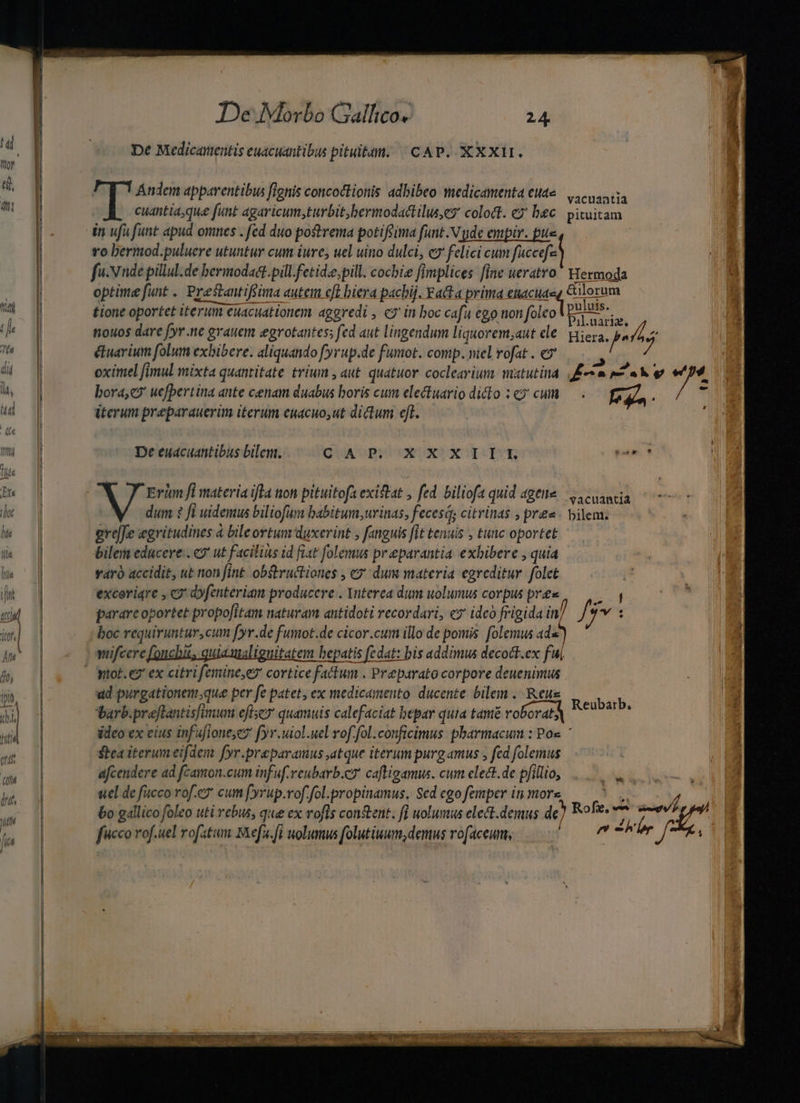 De Morbo Gallico. 24
De Medicamentis euacuantibus pituitam. CAP. XXXII.
TAndem apparentibus ſignis concoctionis adhibeo medicamenta eua= vacuantia
cuantia,que ſunt agaricum,turbit,hermodactilus,& coloct. & hæc pituitam
in uſu ſunt apud omnes . ſed duo poſtrema potiſsima ſunt.Vnde empir. pue=
ro hermod.puluere utuntur cum iure, uel uino dulci, & felici cum ſucceſ=
ſu.Vnde pillul.de hermodact.pill.fetidæ,pill. cochiæ ſimplices ſine ueratro Hermoda
optime ſunt . Præſtantiſsima autem eſt hiera pachij. Facta prima euacua= ctilorum
tione oportet iterum euacuationem aggredi , & in hoc caſu ego non ſoleo puluis.
nouos dare ſyr.ne grauem ægrotantes; ſed aut lingendum liquorem,aut ele Pil.uariæ.
ctuarium ſolum exhibere. aliquando ſyrup.de fumot. comp. mel roſat . & Hiera.
oximel ſimul mixta quantitate trium , aut quatuor coclearium matutina
hora,& ueſpertina ante cænam duabus horis cum electuario dicto : & cum
iterum præparauerim iterum euacuo,ut dictum eſt.
De euacuantibus bilem. CAP. XXXIII.
VErùm ſi materia iſta non pituitoſa exiſtat , ſed bilioſa quid agen= vacuantia
dum ? ſi uidemus bilioſum habitum,urinas, feceſq; citrinas , præ= bilem.
greſſe ægritudines à bile ortum duxerint , ſanguis ſit tenuis , tunc oportet
bilem educere . & ut facilius id fiat ſolemus præparantia exhibere , quia
rarò accidit, ut non ſint obſtructiones , & dum materia egreditur ſolet
excoriare , & dyſenteriam producere . Interea dum uolumus corpus præ=
parare oportet propoſitam naturam antidoti recordari, & ideò frigida in
hoc requiruntur,cum ſyr.de fumot.de cicor.cum illo de pomis ſolemus ad=
miſcere ſonchit, quia malignitatem hepatis ſedat: bis addimus decoct.ex fu
mot.& ex citri ſemine,& cortice factum . Præparato corpore deuenimus
ad purgationem,que per ſe patet, ex medicamento ducente bilem . Reu=
barb.præſtantisſimum eſt;& quamuis calefaciat hepar quia tamē roborat, Reubarb.
ideo ex eius infuſione,& ſyr.uiol.uel roſ.ſol.conficimus pharmacum : Po=
ſtea iterum eiſdem ſyr.præparamus ,atque iterum purgamus , ſed ſolemus
aſcendere ad ſcamon.cum infuſ.reubarb.& caſtigamus. cum elect.de pſillio,
uel de ſucco roſ.& cum ſyrup.roſ.ſol.propinamus. Sed ego ſemper in mor=
bo gallico ſoleo uti rebus, quæ ex roſis conſtent. ſi uolumus elect.demus de Roſæ.
ſucco roſ.uel roſatum Meſu.ſi uolumus ſolutiuum,demus roſaceum,